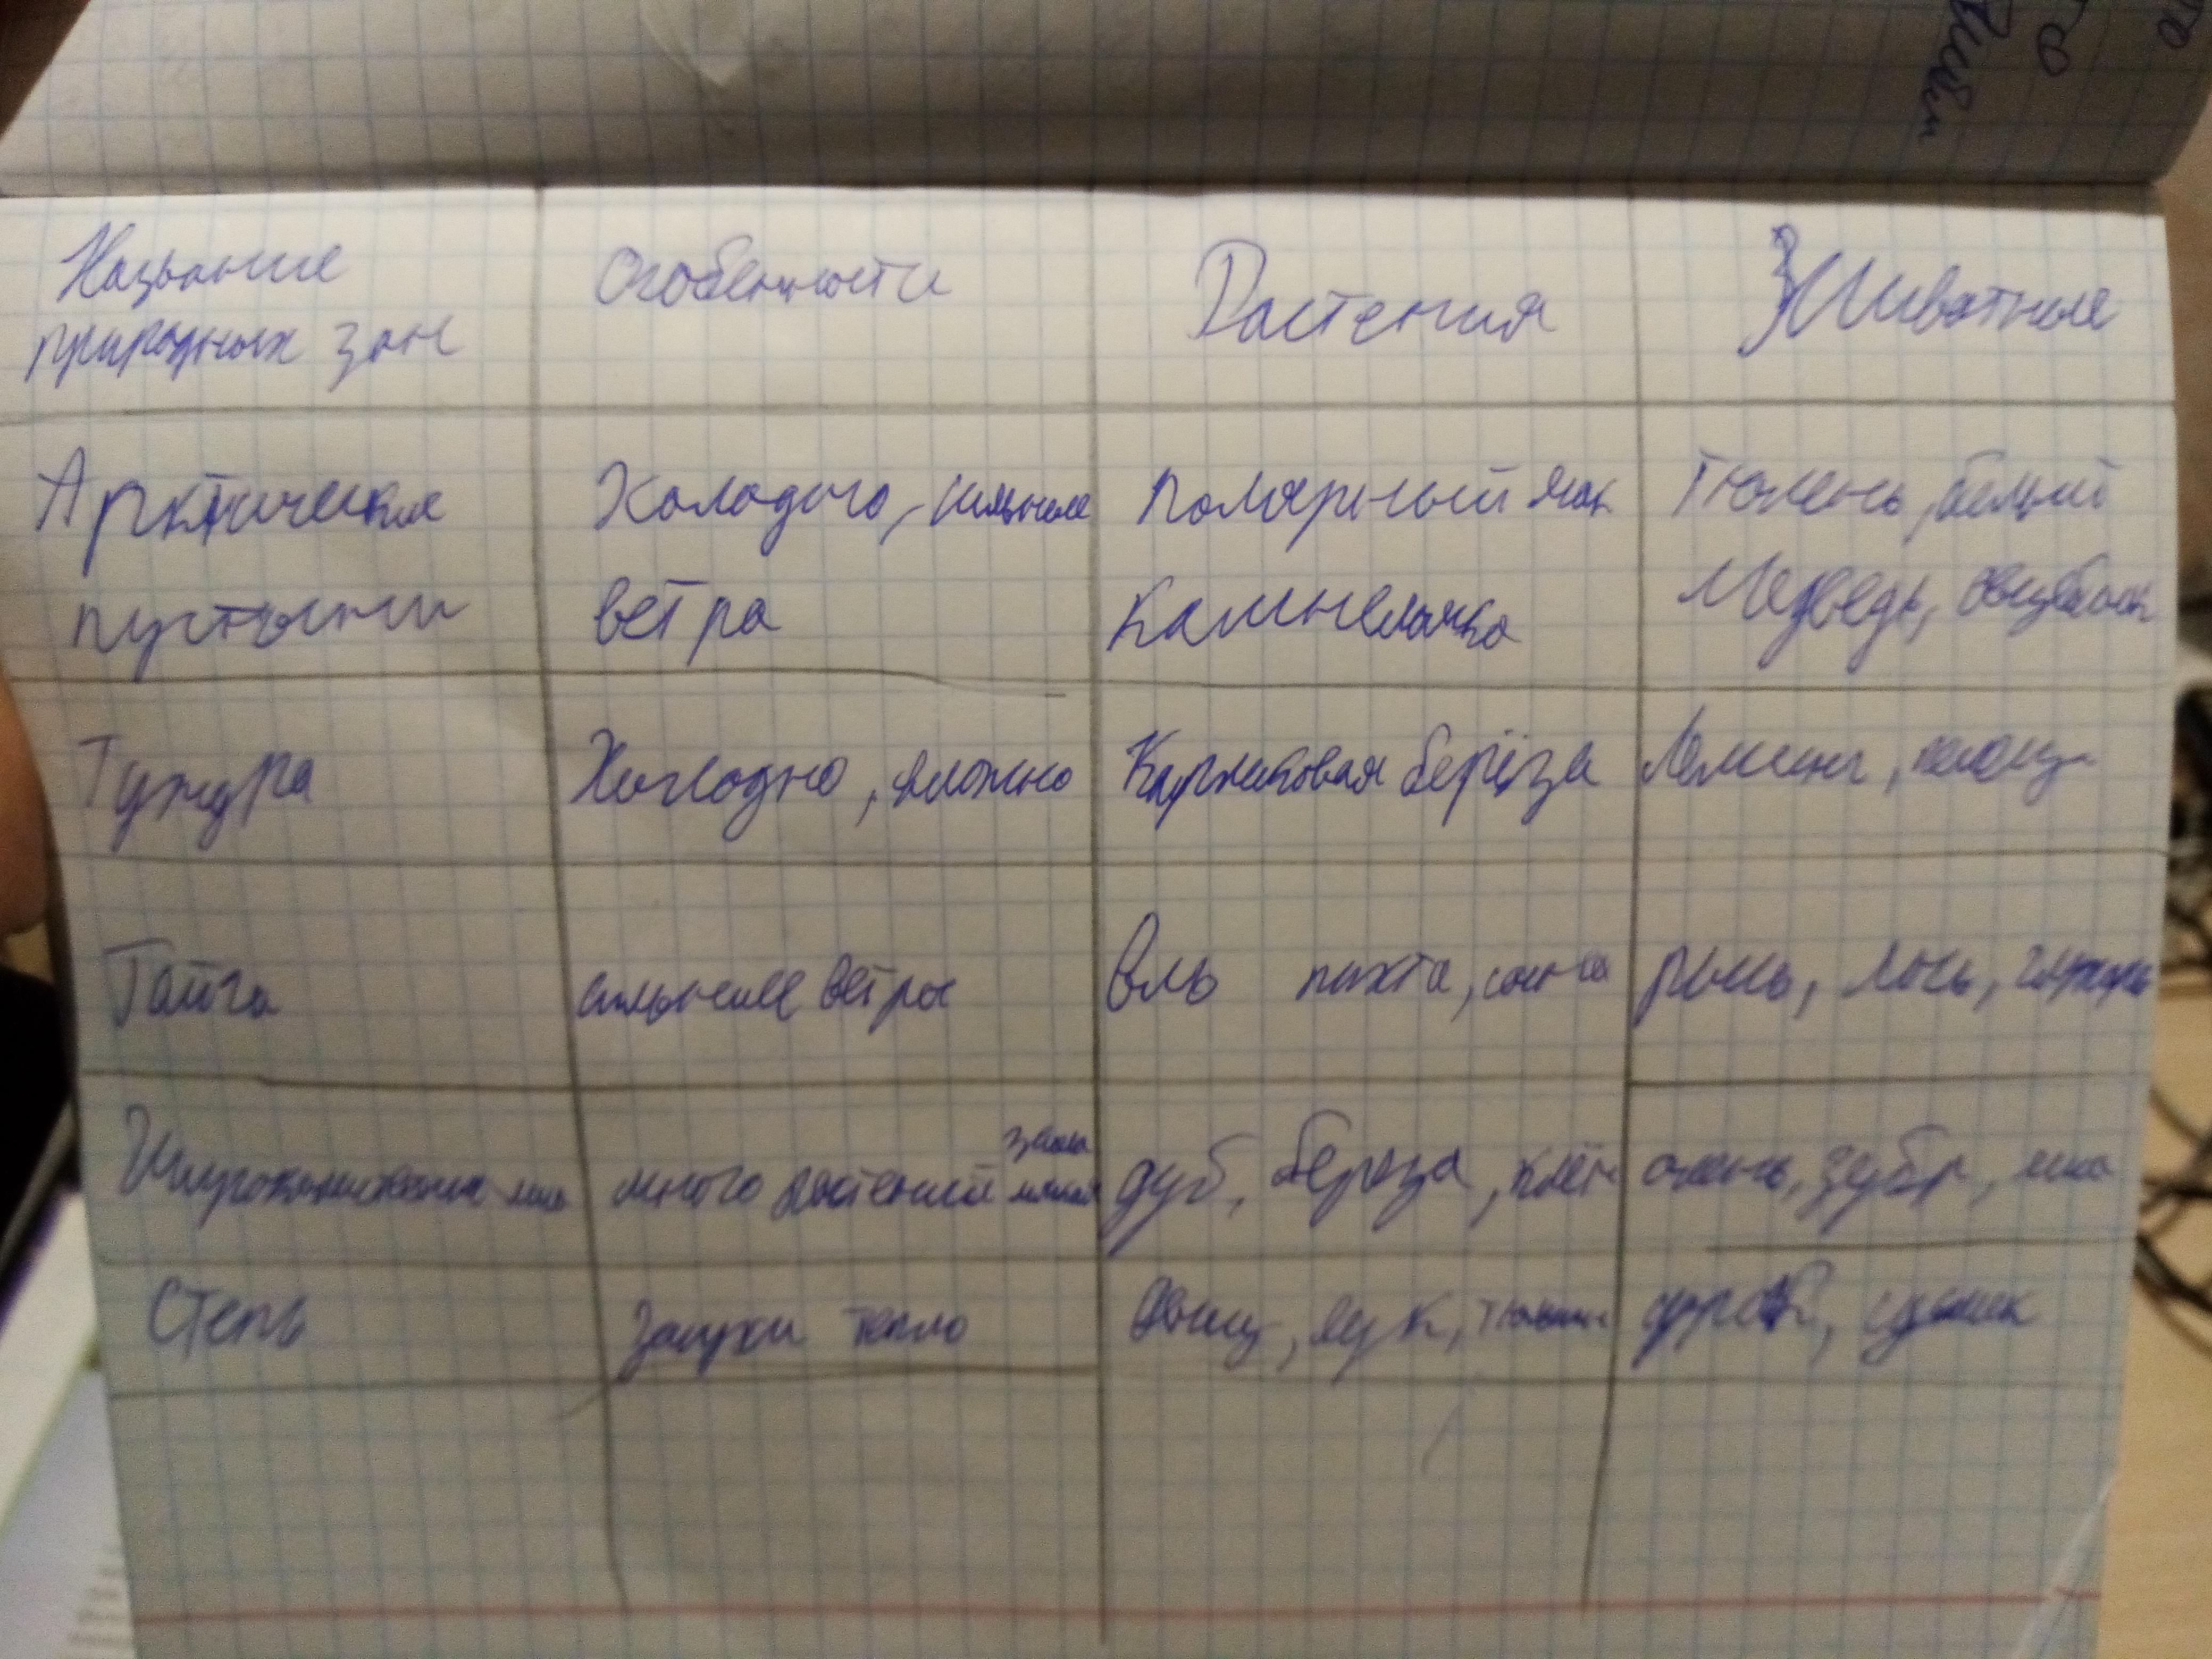 Название
природных зон
Особенности
Растения
Животные
Арктические
пустыни
Холодно, сильные
ветра
Полярный мак
Камнеломка
Тюлень, белый
Медведь, овцебык
Тундра
Холодно, влажно
Карликовая берёза
Лемминг, песец
Тайга
сильные ветры
Ель пихта, сосна
рысь, лось,
Широколиственные леса
много растений зима
дуб, берёза, клён
олень, зубр, лиса
Степь
Засухи тепло
лук, тюльпан
суслик